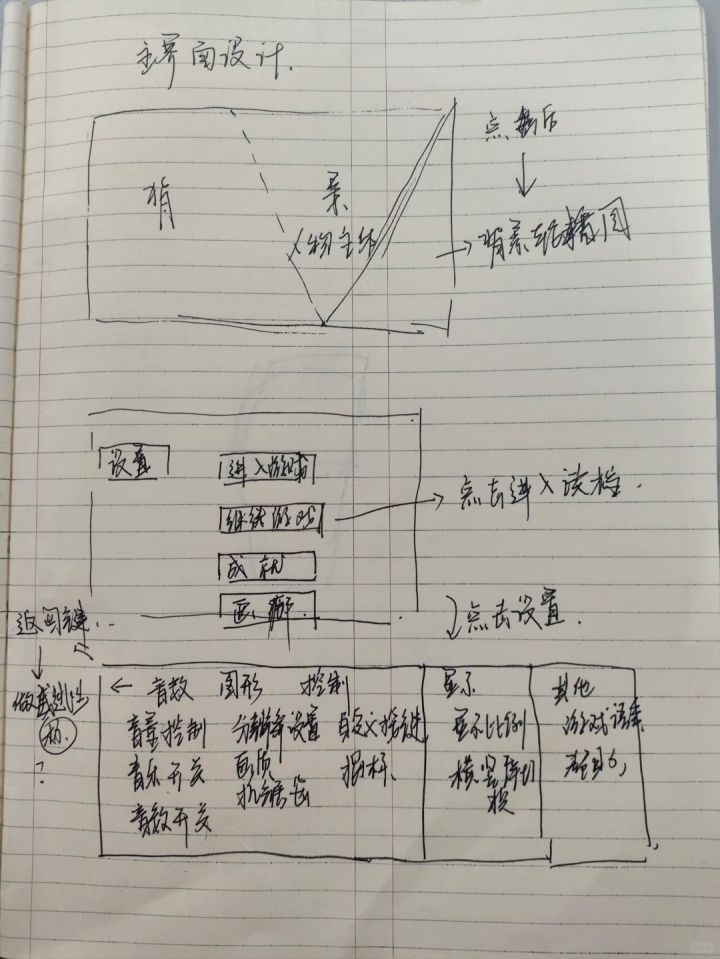 主界面设计.
点击后
背 景
人物主体
背景轮播图
设置
进入游戏
继续游戏
点击进入读档.
成就
画廊
返回键
点击设置.
做成过
?
← 音效 图形 控制 显示 其他
音量控制 分辨率设置 自定义按键 显示比例 游戏语言
音乐开关 画质 横竖屏切
音效开关 抗锯齿 换